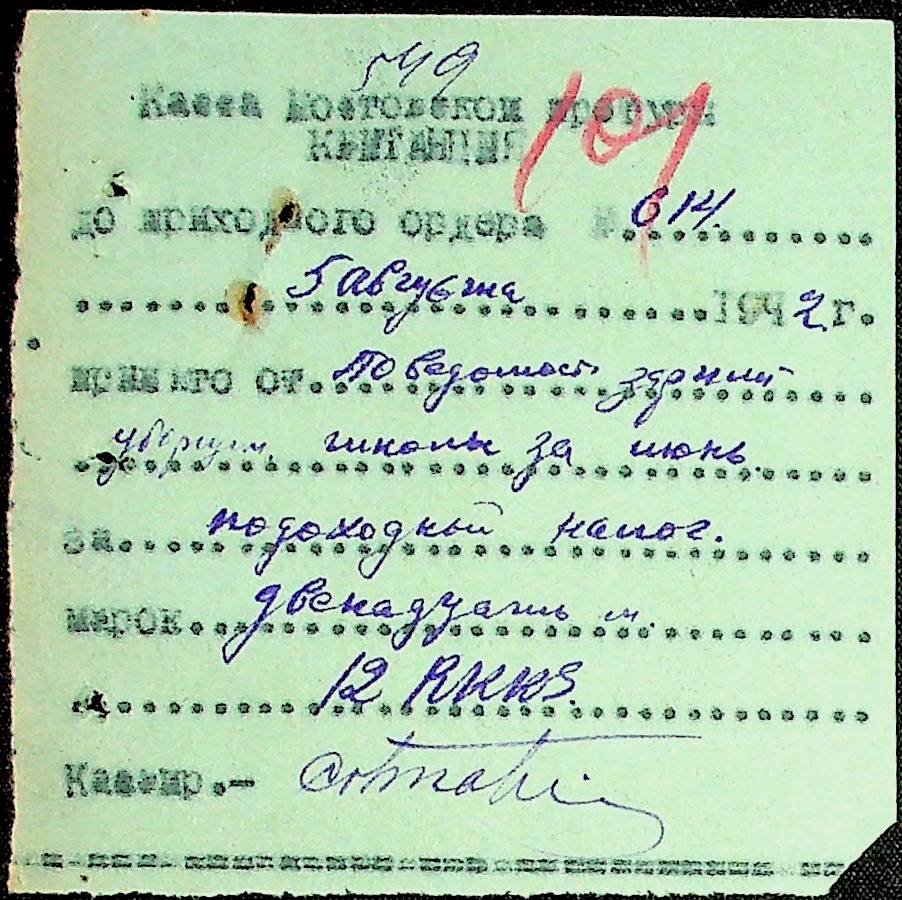 549
Касса Мостовской
КВИТАНЦИЯ 101
до приходного ордера № 614.
5 августа 1942 г.
принято от По ведомости
школы за июнь.
за подоходный налог.
марок двенадцать м.
12 RKKS.
Кассир.-